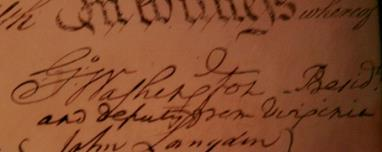 whereof
Go Washington Presidt
and deputy from Virginia
John Langdon